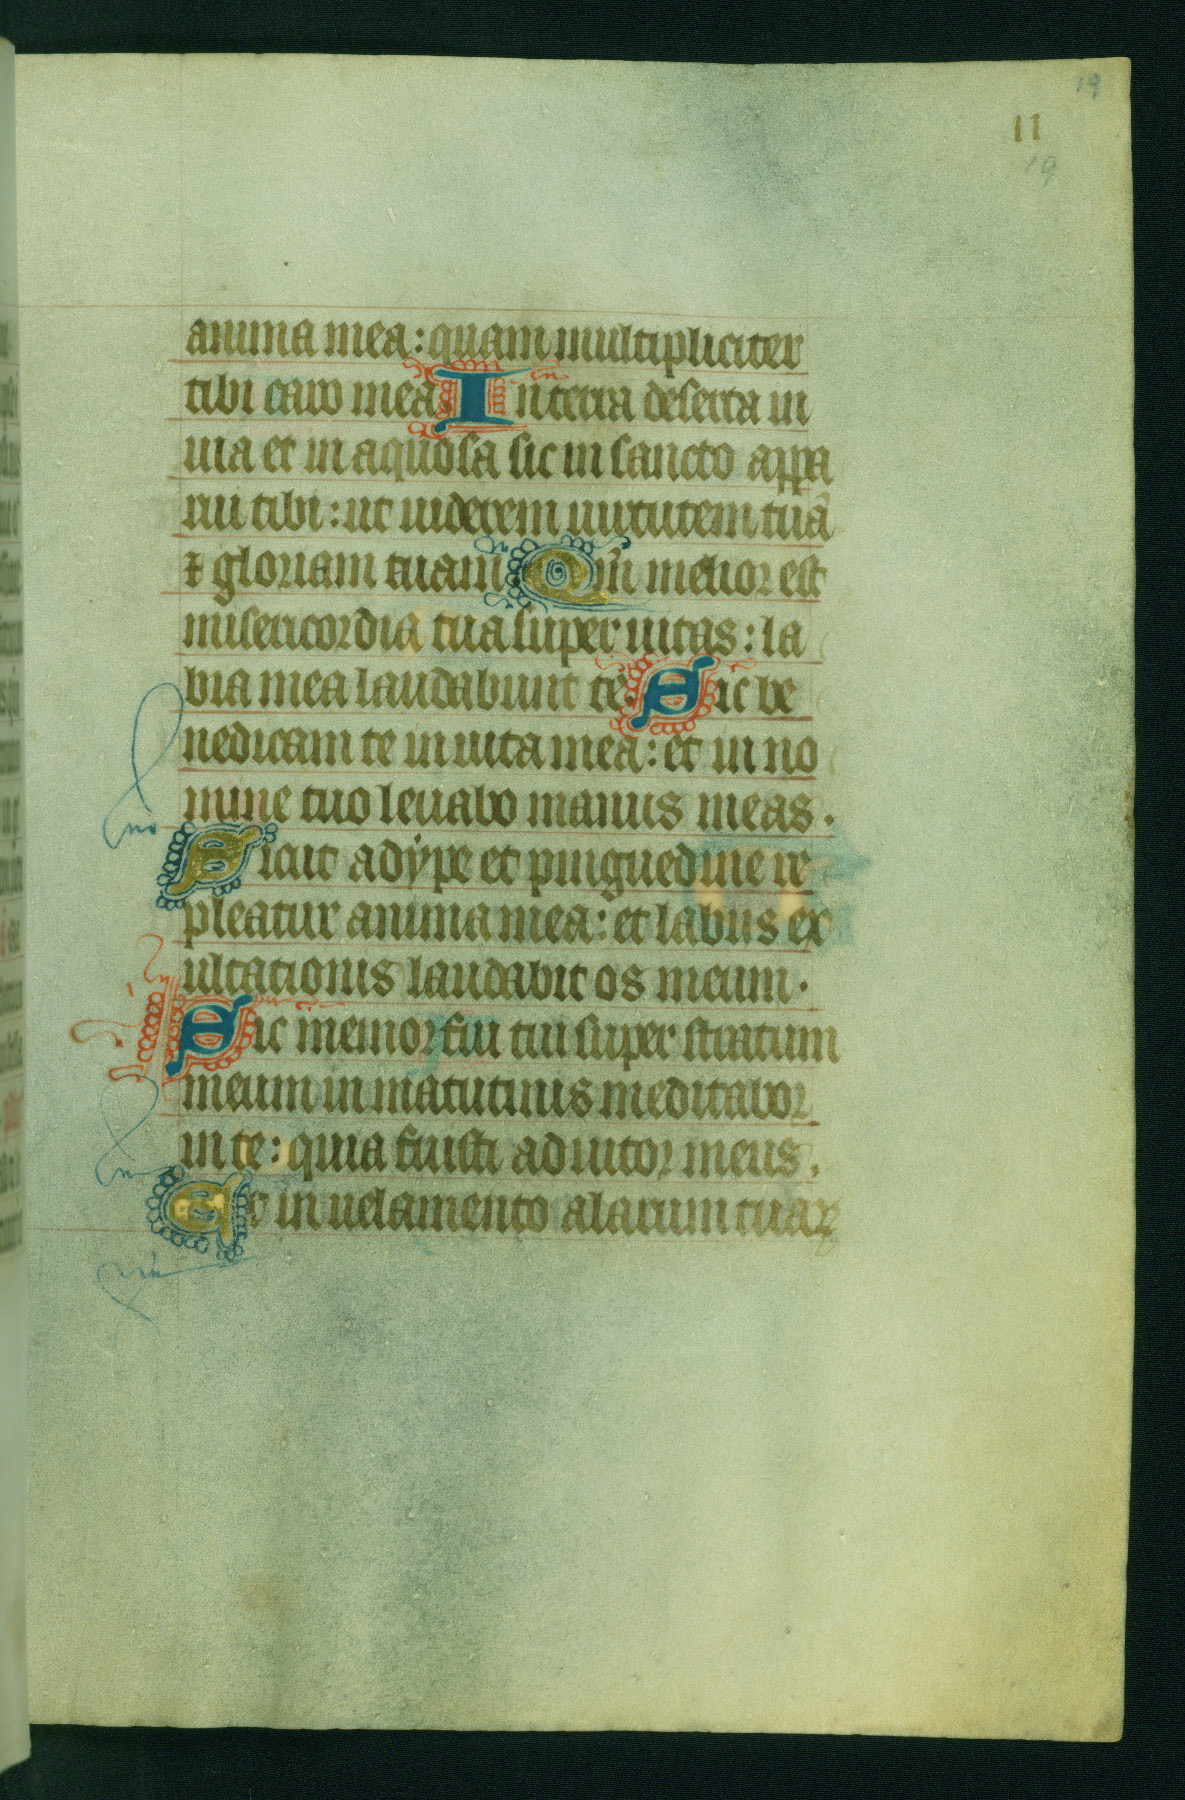 19
11
19
anima mea: quam multipliciter
tibi caro mea. In terra deserta in
uia et in aquosa sic in sancto appa
rui tibi: ut uiderem uirtutem tuā
⁊ gloriam tuam. Qm̄ melior est
misericordia tua super uitas: la
bia mea laudabunt te. Sic be
nedicam te in uita mea: et in no
mine tuo leuabo manus meas.
Sicut adype et pinguedine re
pleatur anima mea: et labiis ex
ultationis laudabit os meum.
Sic memor fui tui super stratum
meum in matutinis meditabor
in te: quia fuisti adiutor meus.
Et in uelamento alarum tuaꝝ